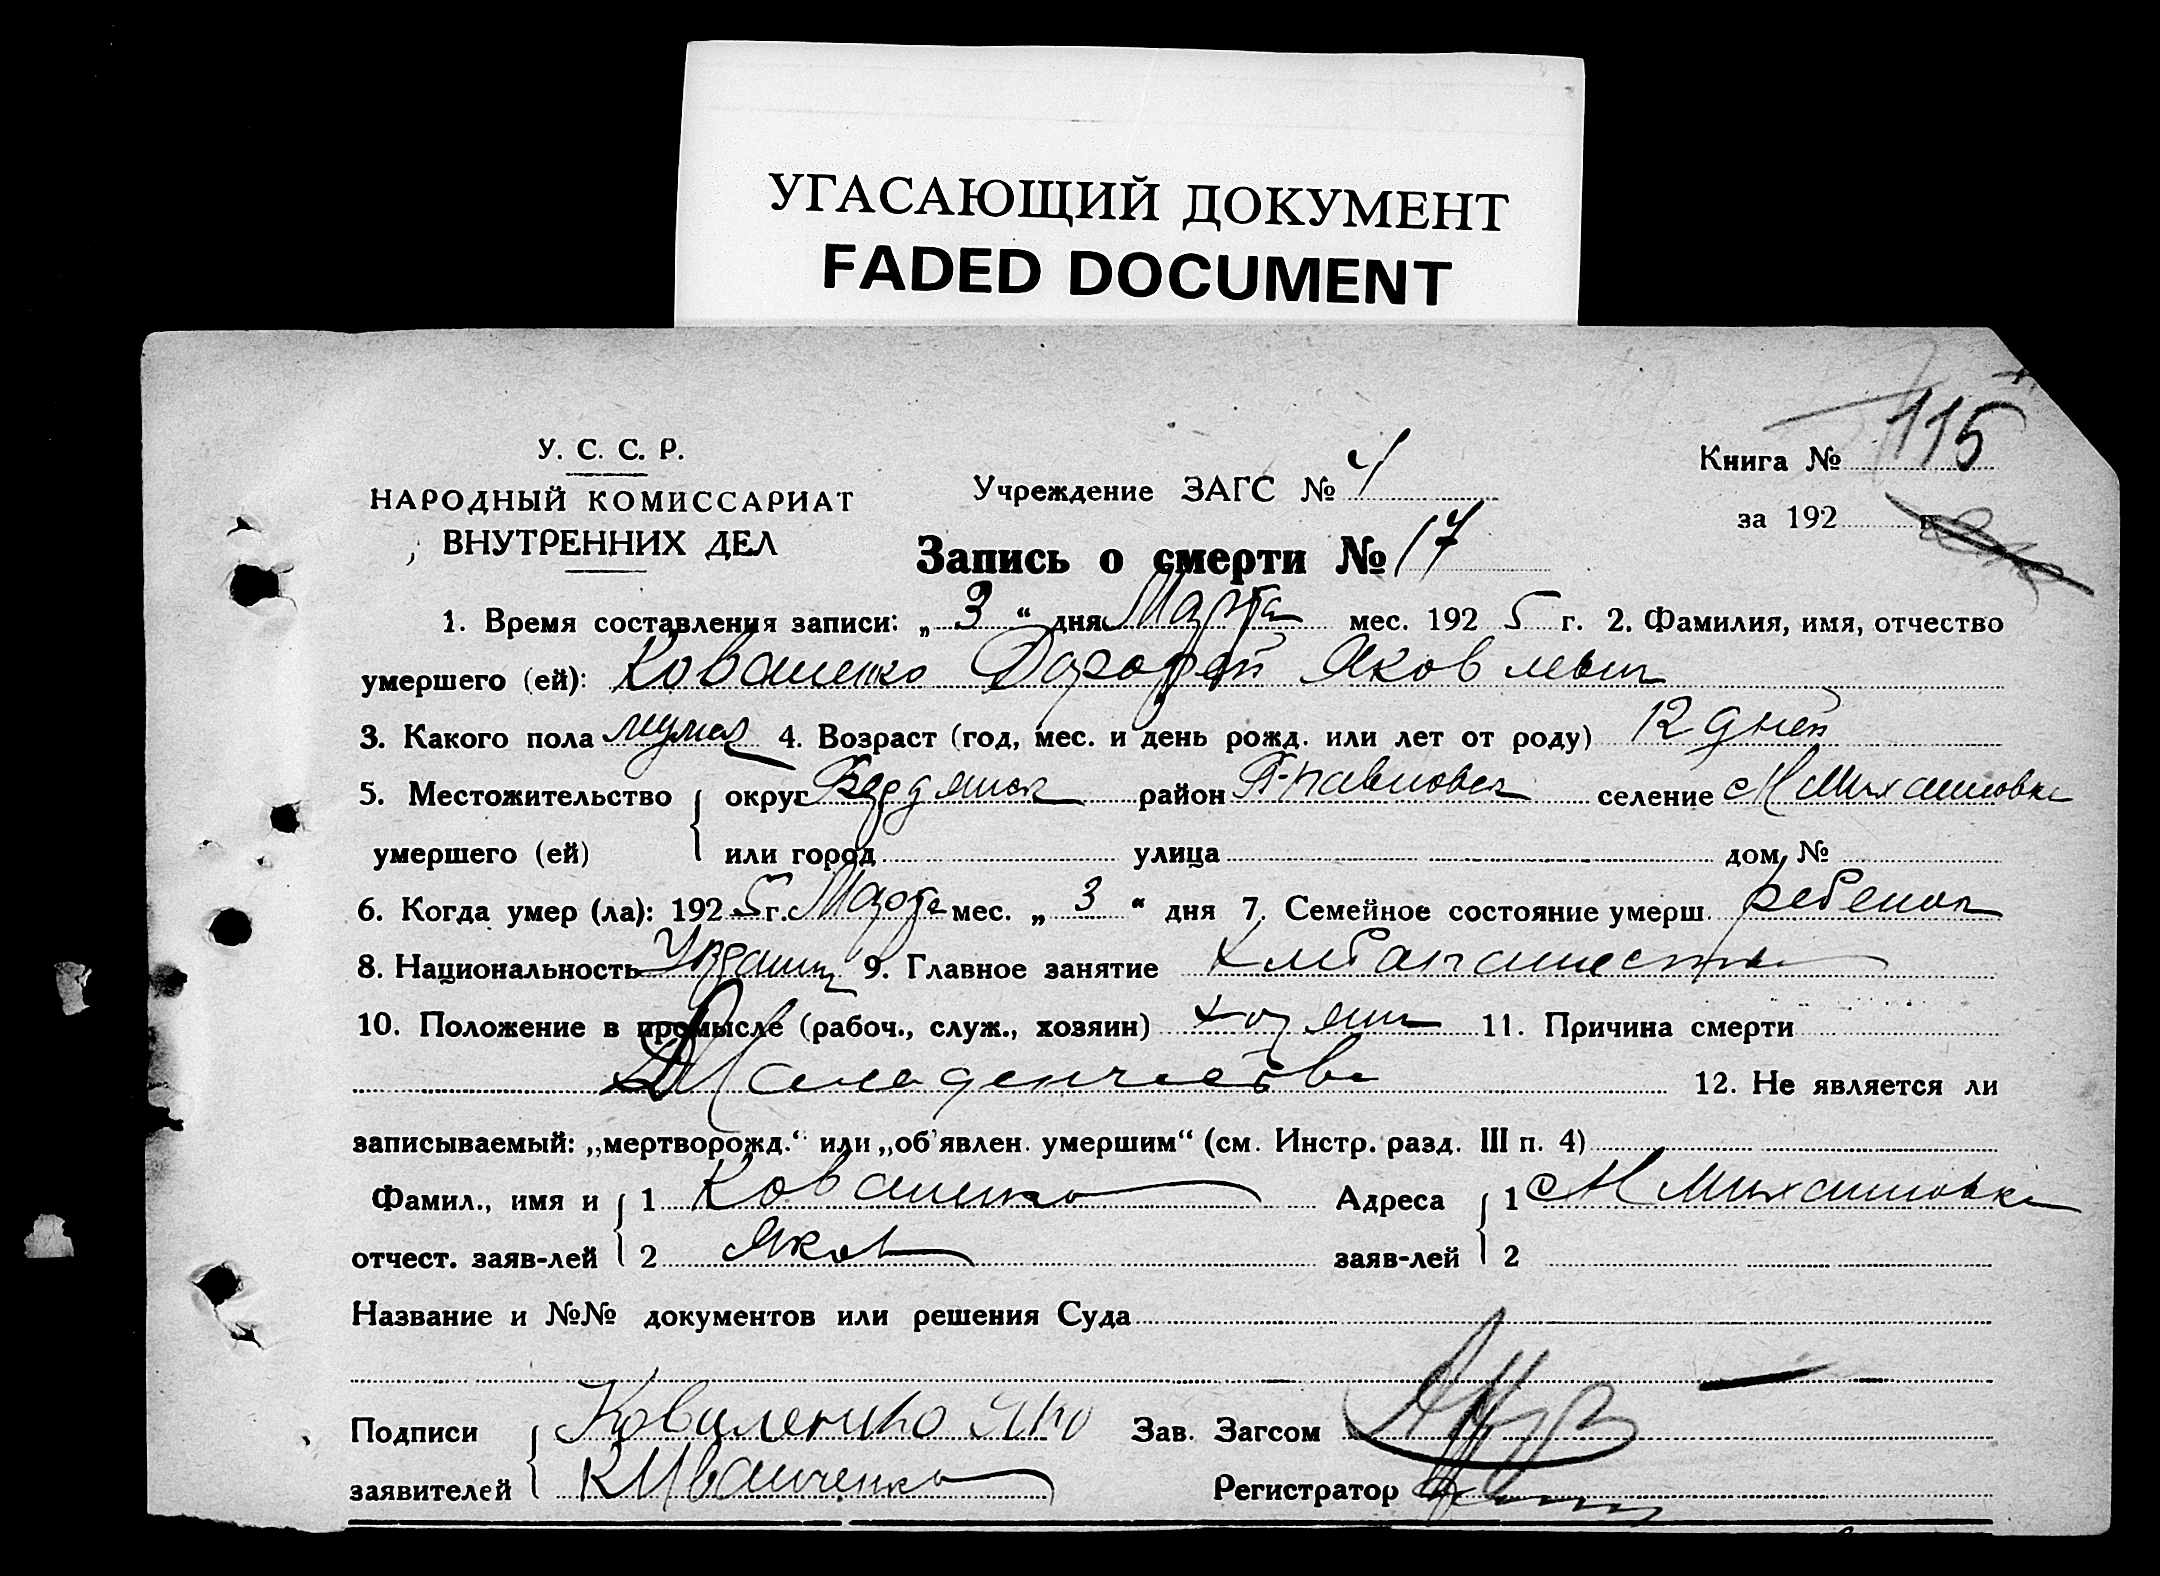 УГАСАЮЩИЙ ДОКУМЕНТ
FADED DOCUMENT
У. С. С. Р.
НАРОДНЫЙ КОМИССАРИАТ
ВНУТРЕННИХ ДЕЛ
Учреждение ЗАГС № 4
Книга № 115
за 192 г.
Запись о смерти № 17
1. Время составления записи: „ 3 “ дня Марта мес. 192 5 г. 2. Фамилия, имя, отчество
умершего (ей): Коваленко Дорофей Яковлевич
3. Какого пола мужск 4. Возраст (год, мес. и день рожд. или лет от роду) 12 дней
5. Местожительство округ Бердянск район павловск селение с М Михайловка
умершего (ей) или город улица дом, №
6. Когда умер (ла): 192 5 г. Марта мес. „ 3 “ дня 7. Семейное состояние умерш. ребенок
8. Национальность Украинц 9. Главное занятие хлебопашество
10. Положение в промысле (рабоч., служ., хозяин) хозяин 11. Причина смерти
Младенчество 12. Не является ли
записываемый: „мертворожд.“ или „об'явлен. умершим“ (см. Инстр. разд. III п. 4)
Фамил., имя и 1 Коваленко Адреса 1 с М Михайловка
отчест. заяв-лей 2 Яков заяв-лей 2
Название и №№ документов или решения Суда
Подписи Коваленко Яко Зав. Загсом
заявителей К Иванченко Регистратор